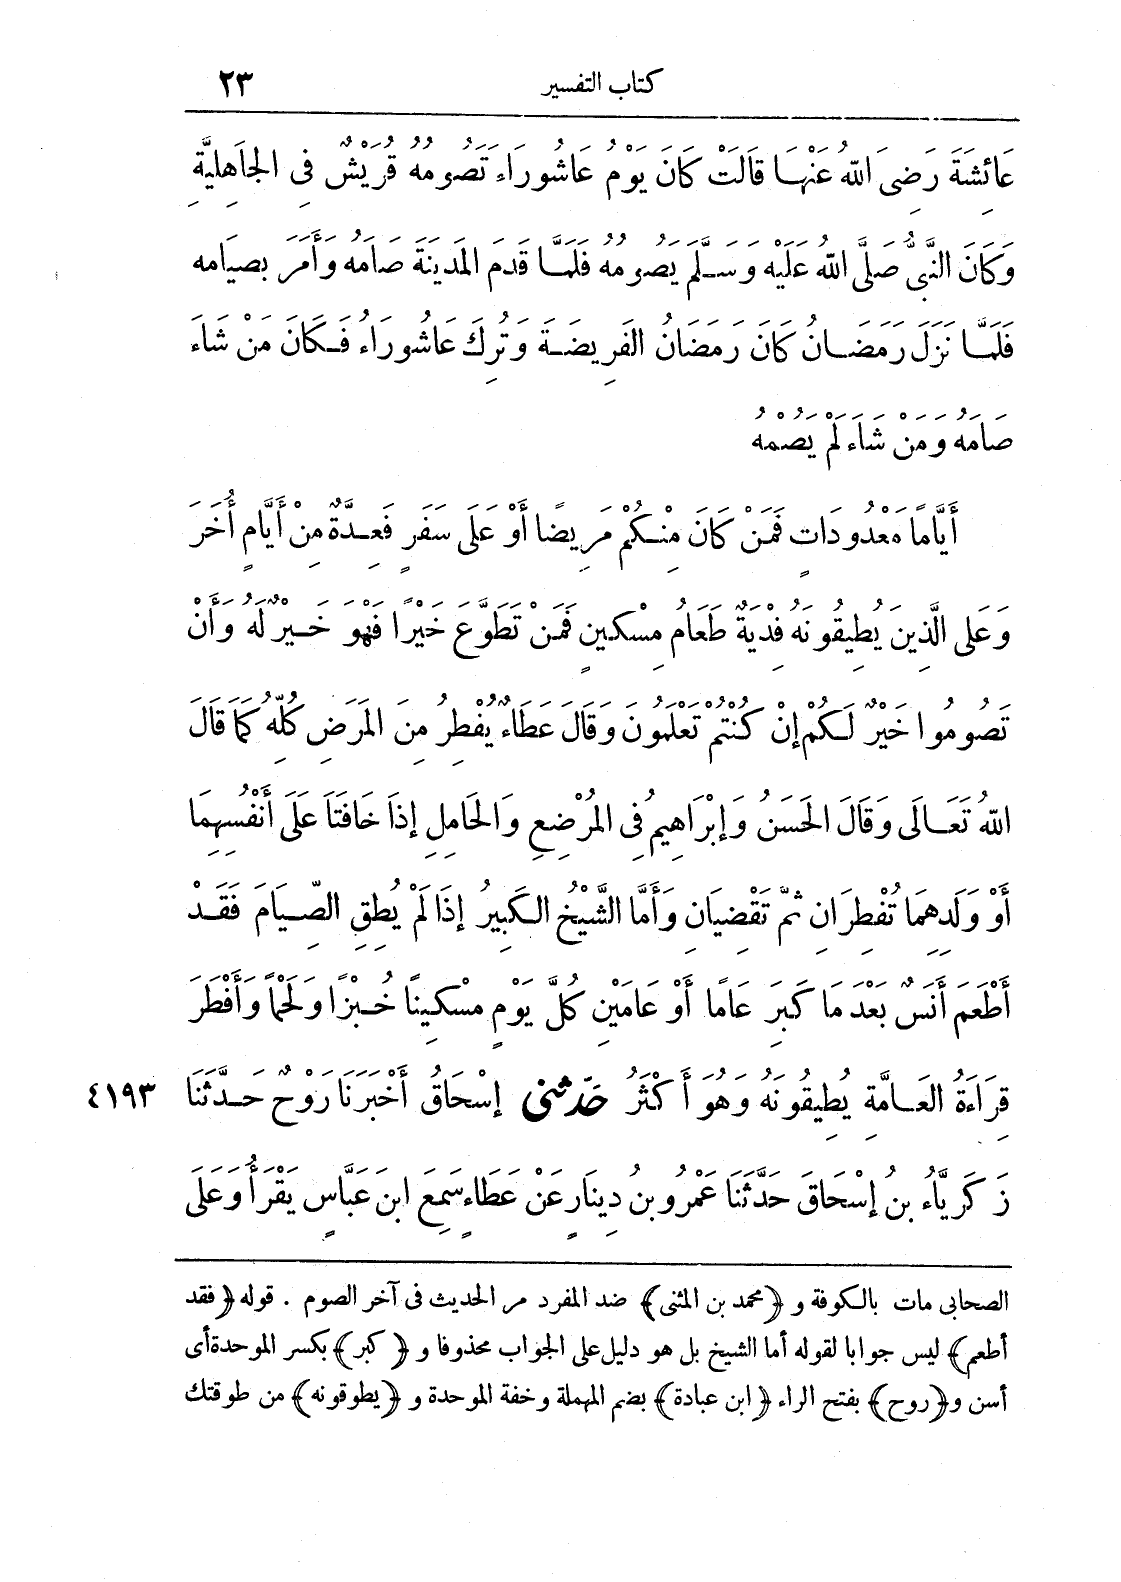 كتاب التفسير ٢٣
عَائِشَةَ رَضِىَ اللهُ عَنْهَا قَالَتْ كَانَ يَوْمُ عَاشُورَاءَ تَصُومُهُ قُرَيْشٌ فِى الجَاهِلِيَّةِ
وَكَانَ النَّبِىُّ صَلَّى اللهُ عَلَيْهِ وَسَلَّمَ يَصُومُهُ فَلَمَّا قَدِمَ المَدِينَةَ صَامَهُ وَأَمَرَ بِصِيَامِهِ
فَلَمَّا نَزَلَ رَمَضَانُ كَانَ رَمَضَانُ الفَرِيضَةَ وَتُرِكَ عَاشُورَاءُ فَكَانَ مَنْ شَاءَ
صَامَهُ وَمَنْ شَاءَ لَمْ يَصُمْهُ
أَيَّامًا مَعْدُودَاتٍ فَمَنْ كَانَ مِنْكُمْ مَرِيضًا أَوْ عَلَى سَفَرٍ فَعِدَّةٌ مِنْ أَيَّامٍ أُخَرَ
وَعَلَى الَّذِينَ يُطِيقُونَهُ فِدْيَةٌ طَعَامُ مِسْكِينٍ فَمَنْ تَطَوَّعَ خَيْرًا فَهْوَ خَيْرٌ لَهُ وَأَنْ
تَصُومُوا خَيْرٌ لَكُمْ إِنْ كُنْتُمْ تَعْلَمُونَ وَقَالَ عَطَاءٌ يُفْطِرُ مِنَ المَرَضِ كُلِّهِ كَمَا قَالَ
اللهُ تَعَالَى وَقَالَ الحَسَنُ وَإِبْرَاهِيمُ فِى المُرْضِعِ وَالحَامِلِ إِذَا خَافَتَا عَلَى أَنْفُسِهِمَا
أَوْ وَلَدِهِمَا تُفْطِرَانِ ثُمَّ تَقْضِيَانِ وَأَمَّا الشَّيْخُ الكَبِيرُ إِذَا لَمْ يُطِقِ الصِّيَامَ فَقَدْ
أَطْعَمَ أَنَسٌ بَعْدَ مَا كَبِرَ عَامًا أَوْ عَامَيْنِ كُلَّ يَوْمٍ مِسْكِينًا خُبْزًا وَلَحْمًا وَأَفْطَرَ
قِرَاءَةُ العَامَّةِ يُطِيقُونَهُ وَهُوَ أَكْثَرُ حَدَّثَنِى إِسْحَاقُ أَخْبَرَنَا رَوْحٌ حَدَّثَنَا ٤١٩٣
زَكَرِيَّاءُ بنُ إِسْحَاقَ حَدَّثَنَا عَمْرُو بنُ دِينَارٍ عَنْ عَطَاءٍ سَمِعَ ابنَ عَبَّاسٍ يَقْرَأُ وَعَلَى
الصحابى مات بالكوفة و ﴿محمد بن المثنى﴾ ضد المفرد مر الحديث فى آخر الصوم . قوله ﴿فقد
أطعم﴾ ليس جوابا لقوله أما الشيخ بل هو دليل على الجواب محذوفا و ﴿كبر﴾ بكسر الموحدة أى
أسن و﴿روح﴾ بفتح الراء ﴿ابن عبادة﴾ بضم المهملة وخفة الموحدة و ﴿يطوقونه﴾ من طوقتك